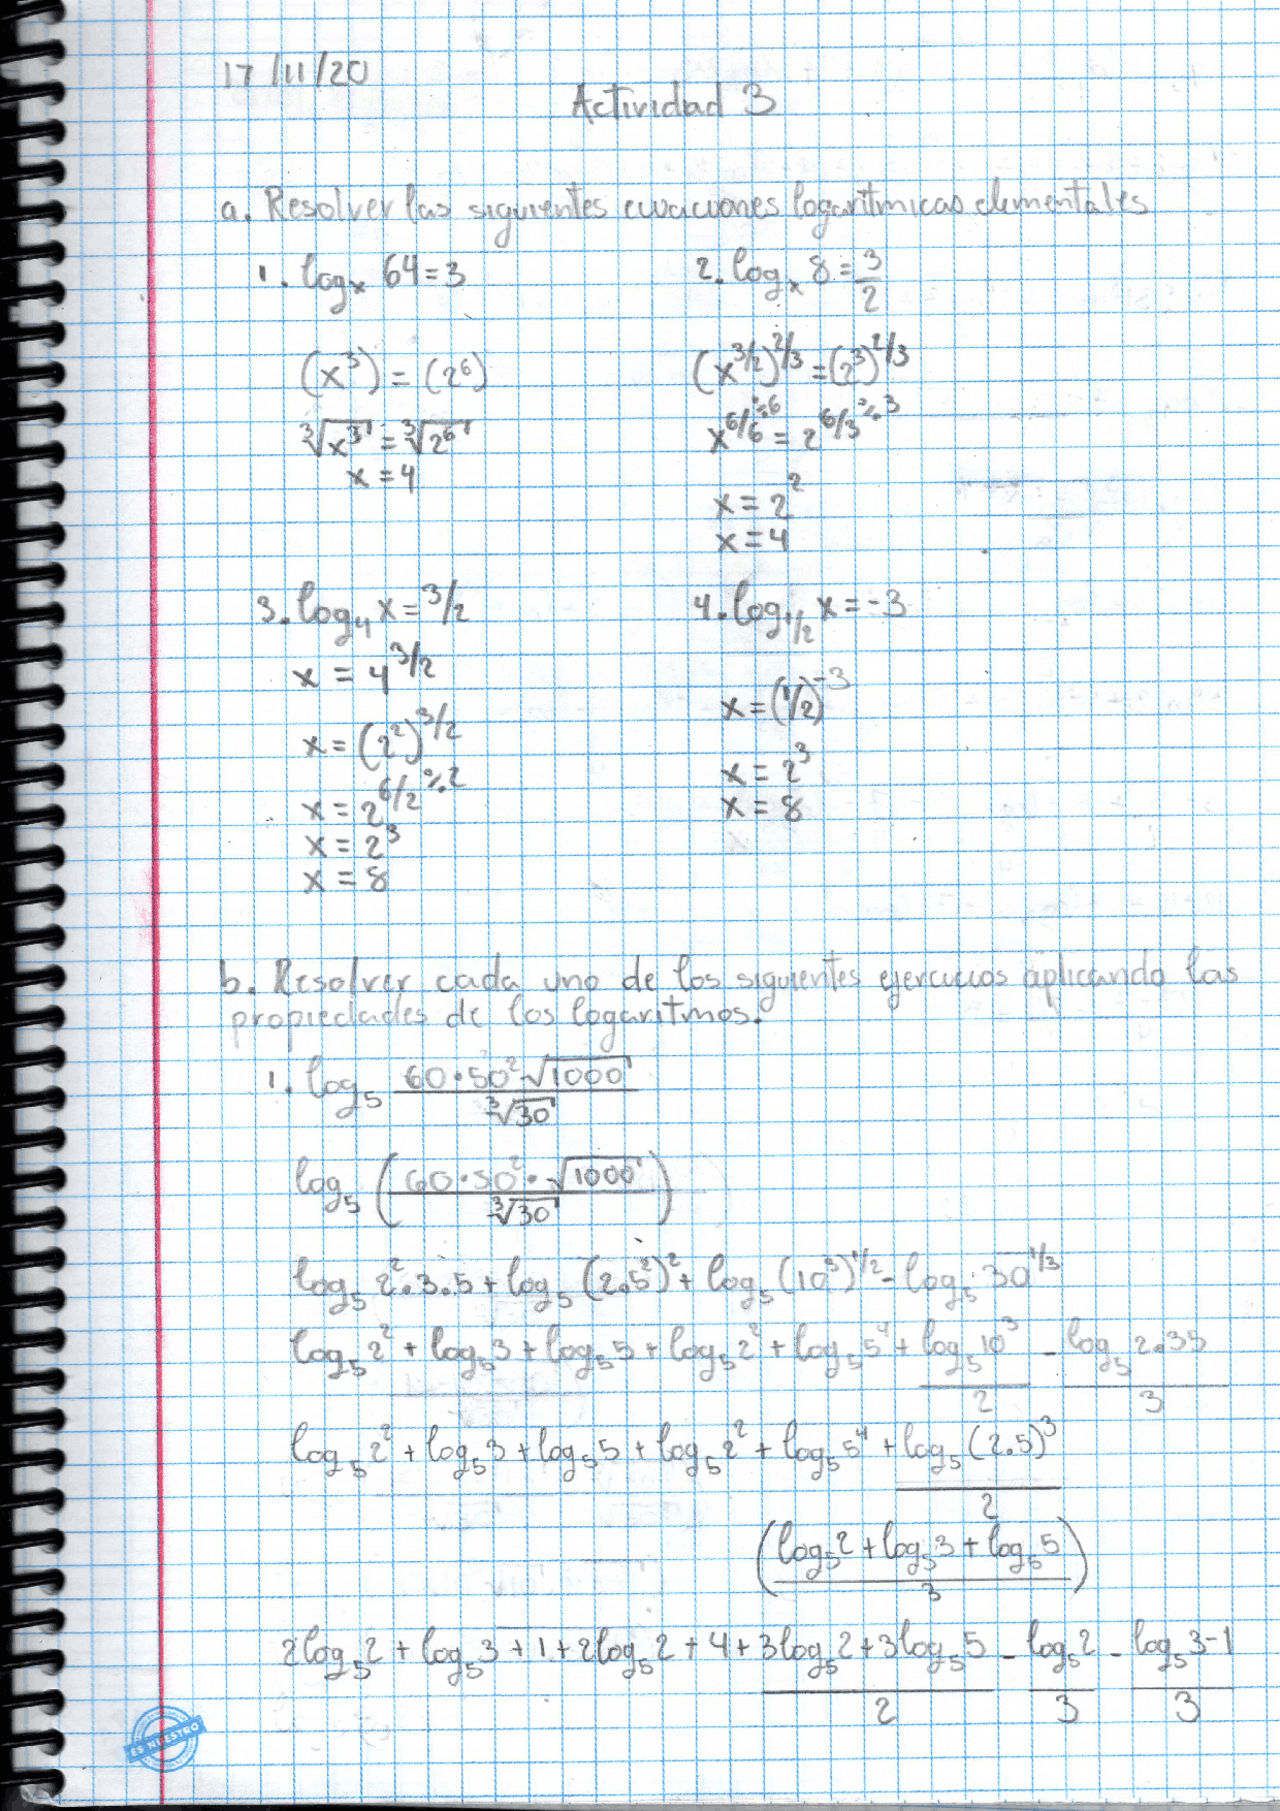 17/11/20
Actividad 3
a. Resolver las siguientes ecuaciones logarítmicas elementales
1. logₓ 64 = 3
(x³) = (2⁶)
∛x³ = ∛2⁶
x = 4
2. logₓ 8 = 3/2
(x^3/2)^2/3 = (2³)^2/3
x^6/6 ÷6 = 2^6/3 ÷3
x = 2²
x = 4
3. log₄ x = 3/2
x = 4^3/2
x = (2²)^3/2
x = 2^6/2 ÷2
x = 2³
x = 8
4. log₁/₂ x = -3
x = (1/2)^-3
x = 2³
x = 8
b. Resolver cada uno de los siguientes ejercicios aplicando las
propiedades de los logaritmos.
1. log₅ 60·50²√1000 / ∛30
log₅ (60·50²·√1000 / ∛30)
log₅ 2²·3·5 + log₅ (2·5²)² + log₅ (10³)^1/2 - log₅ 30^1/3
log₅ 2² + log₅ 3 + log₅ 5 + log₅ 2² + log₅ 5⁴ + log₅ 10³ / 2 - log₅ 2·35 / 3
log₅ 2² + log₅ 3 + log₅ 5 + log₅ 2² + log₅ 5⁴ + log₅ (2·5)³ / 2
(log₅ 2 + log₅ 3 + log₅ 5 / 3)
2log₅ 2 + log₅ 3 + 1 + 2log₅ 2 + 4 + 3log₅ 2 + 3log₅ 5 / 2 - log₅ 2 / 3 - log₅ 3 - 1 / 3
ES NUESTRO